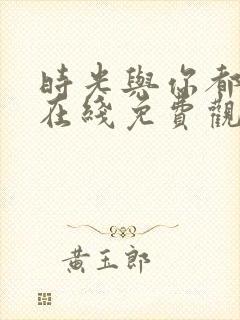 時光與你都
在綫免費觀
黃玉郎